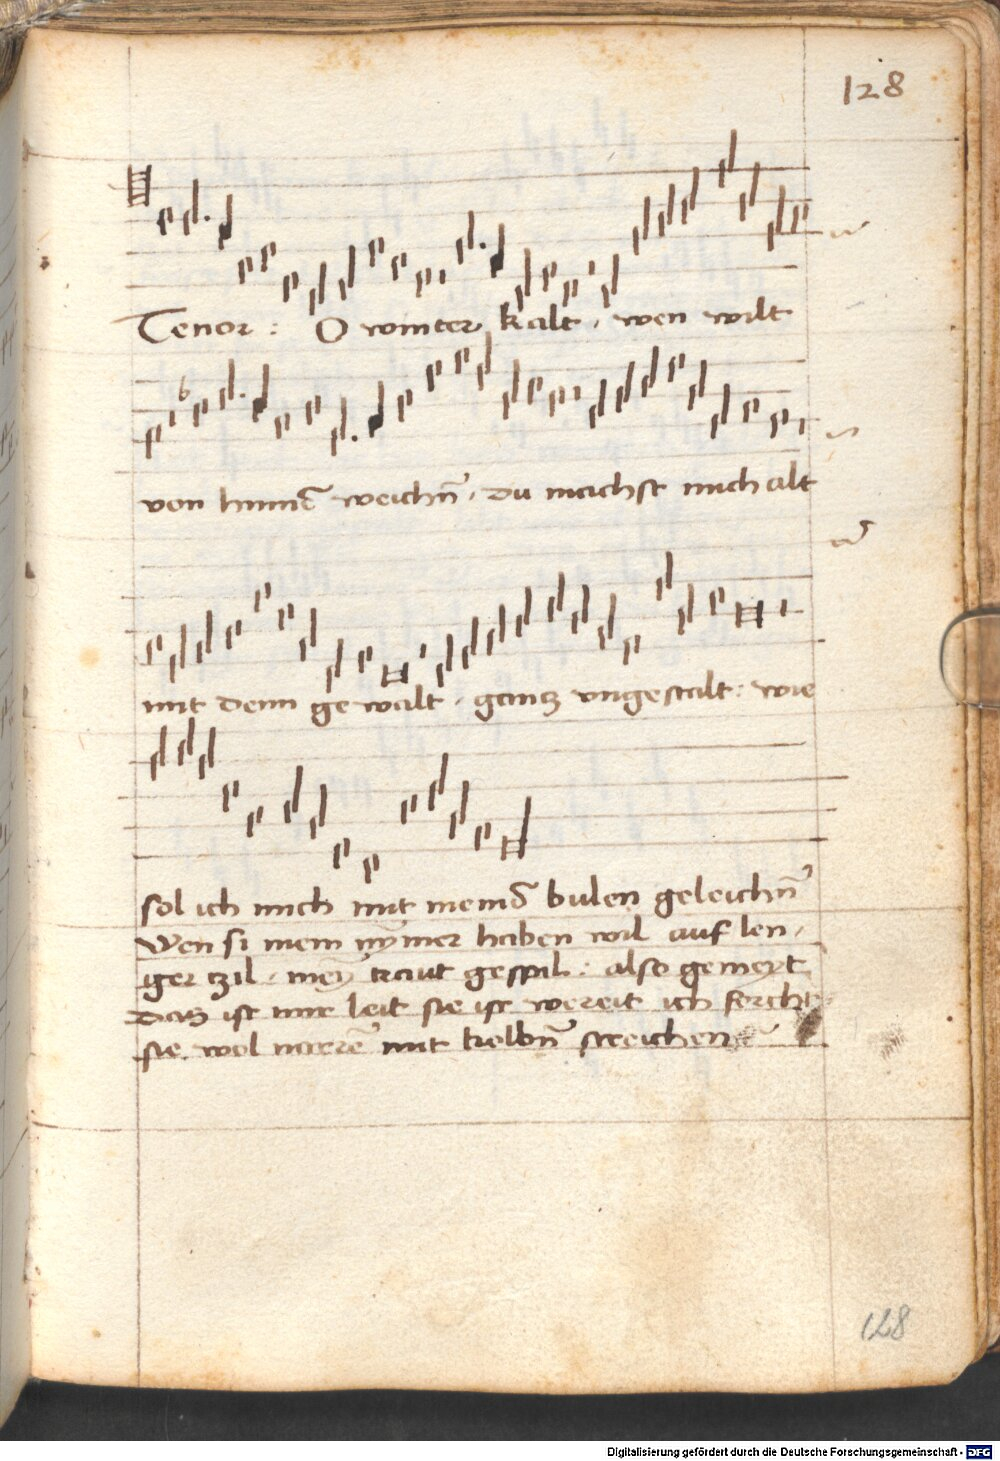 128
Tenor : O winter kalt . wen wilt
von hinnē weichn̄ . du machst mich alt
mit deim gewalt . gantz vngestalt : wie
sol ich mich mit meinē bulen geleichn̄
Wen si mein nym̄er haben wil auf len,
ger tzil . mey traut gespil : also gemeyt
Daz ist mir leit sie ist wereit ich forcht
sie wol mit kolbn̄ streichen
128
Digitalisierung gefördert durch die Deutsche Forschungsgemeinschaft - DFG